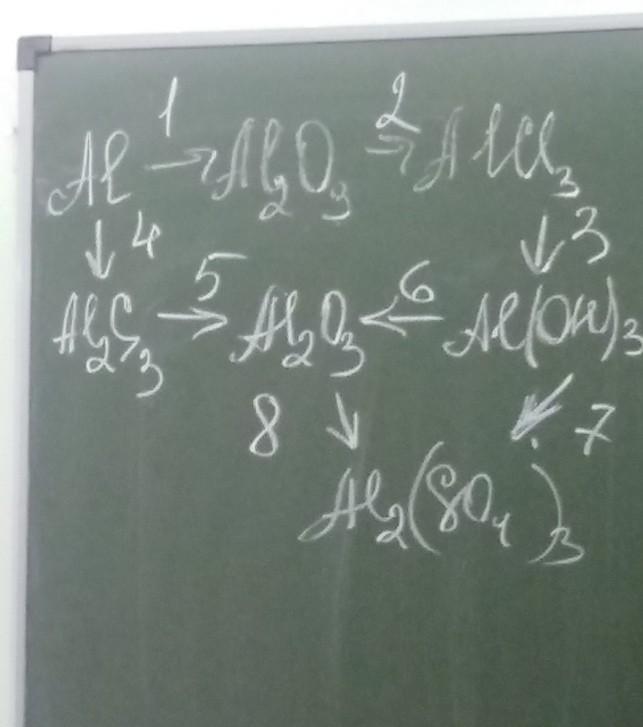 Al 1 → Al₂O₃ 2 → AlCl₃
↓ 4 ↓ 3
Al₂S₃ 5 → Al₂O₃ ← 6 Al(OH)₃
8 ↓ ↙ 7
Al₂(SO₄)₃